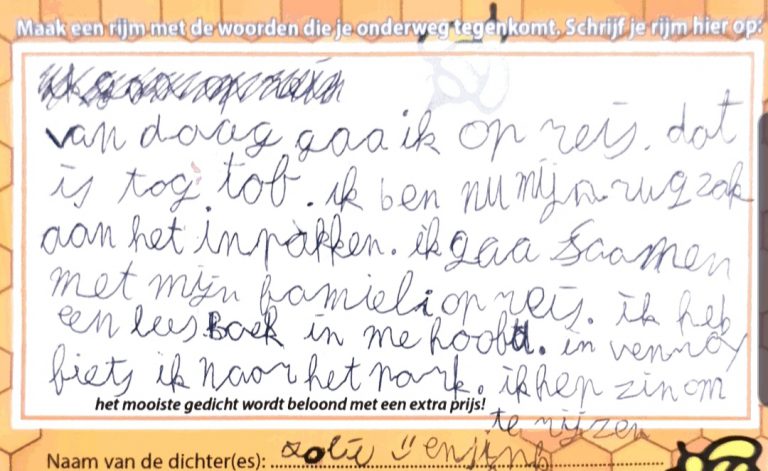 Maak een rijm met de woorden die je onderweg tegenkomt. Schrijf je rijm hier op:
van daag gaa ik op reis. dat
is tog tof. ik ben nu mijn rugzak
aan het inpakken. ik gaa saamen
met mijn famieli op reis. ik heb
een lees boek in me hoofd. in venray
fiets ik naar het park. ik hep zin om
te rijzen
het mooiste gedicht wordt beloond met een extra prijs!
Naam van de dichter(es):